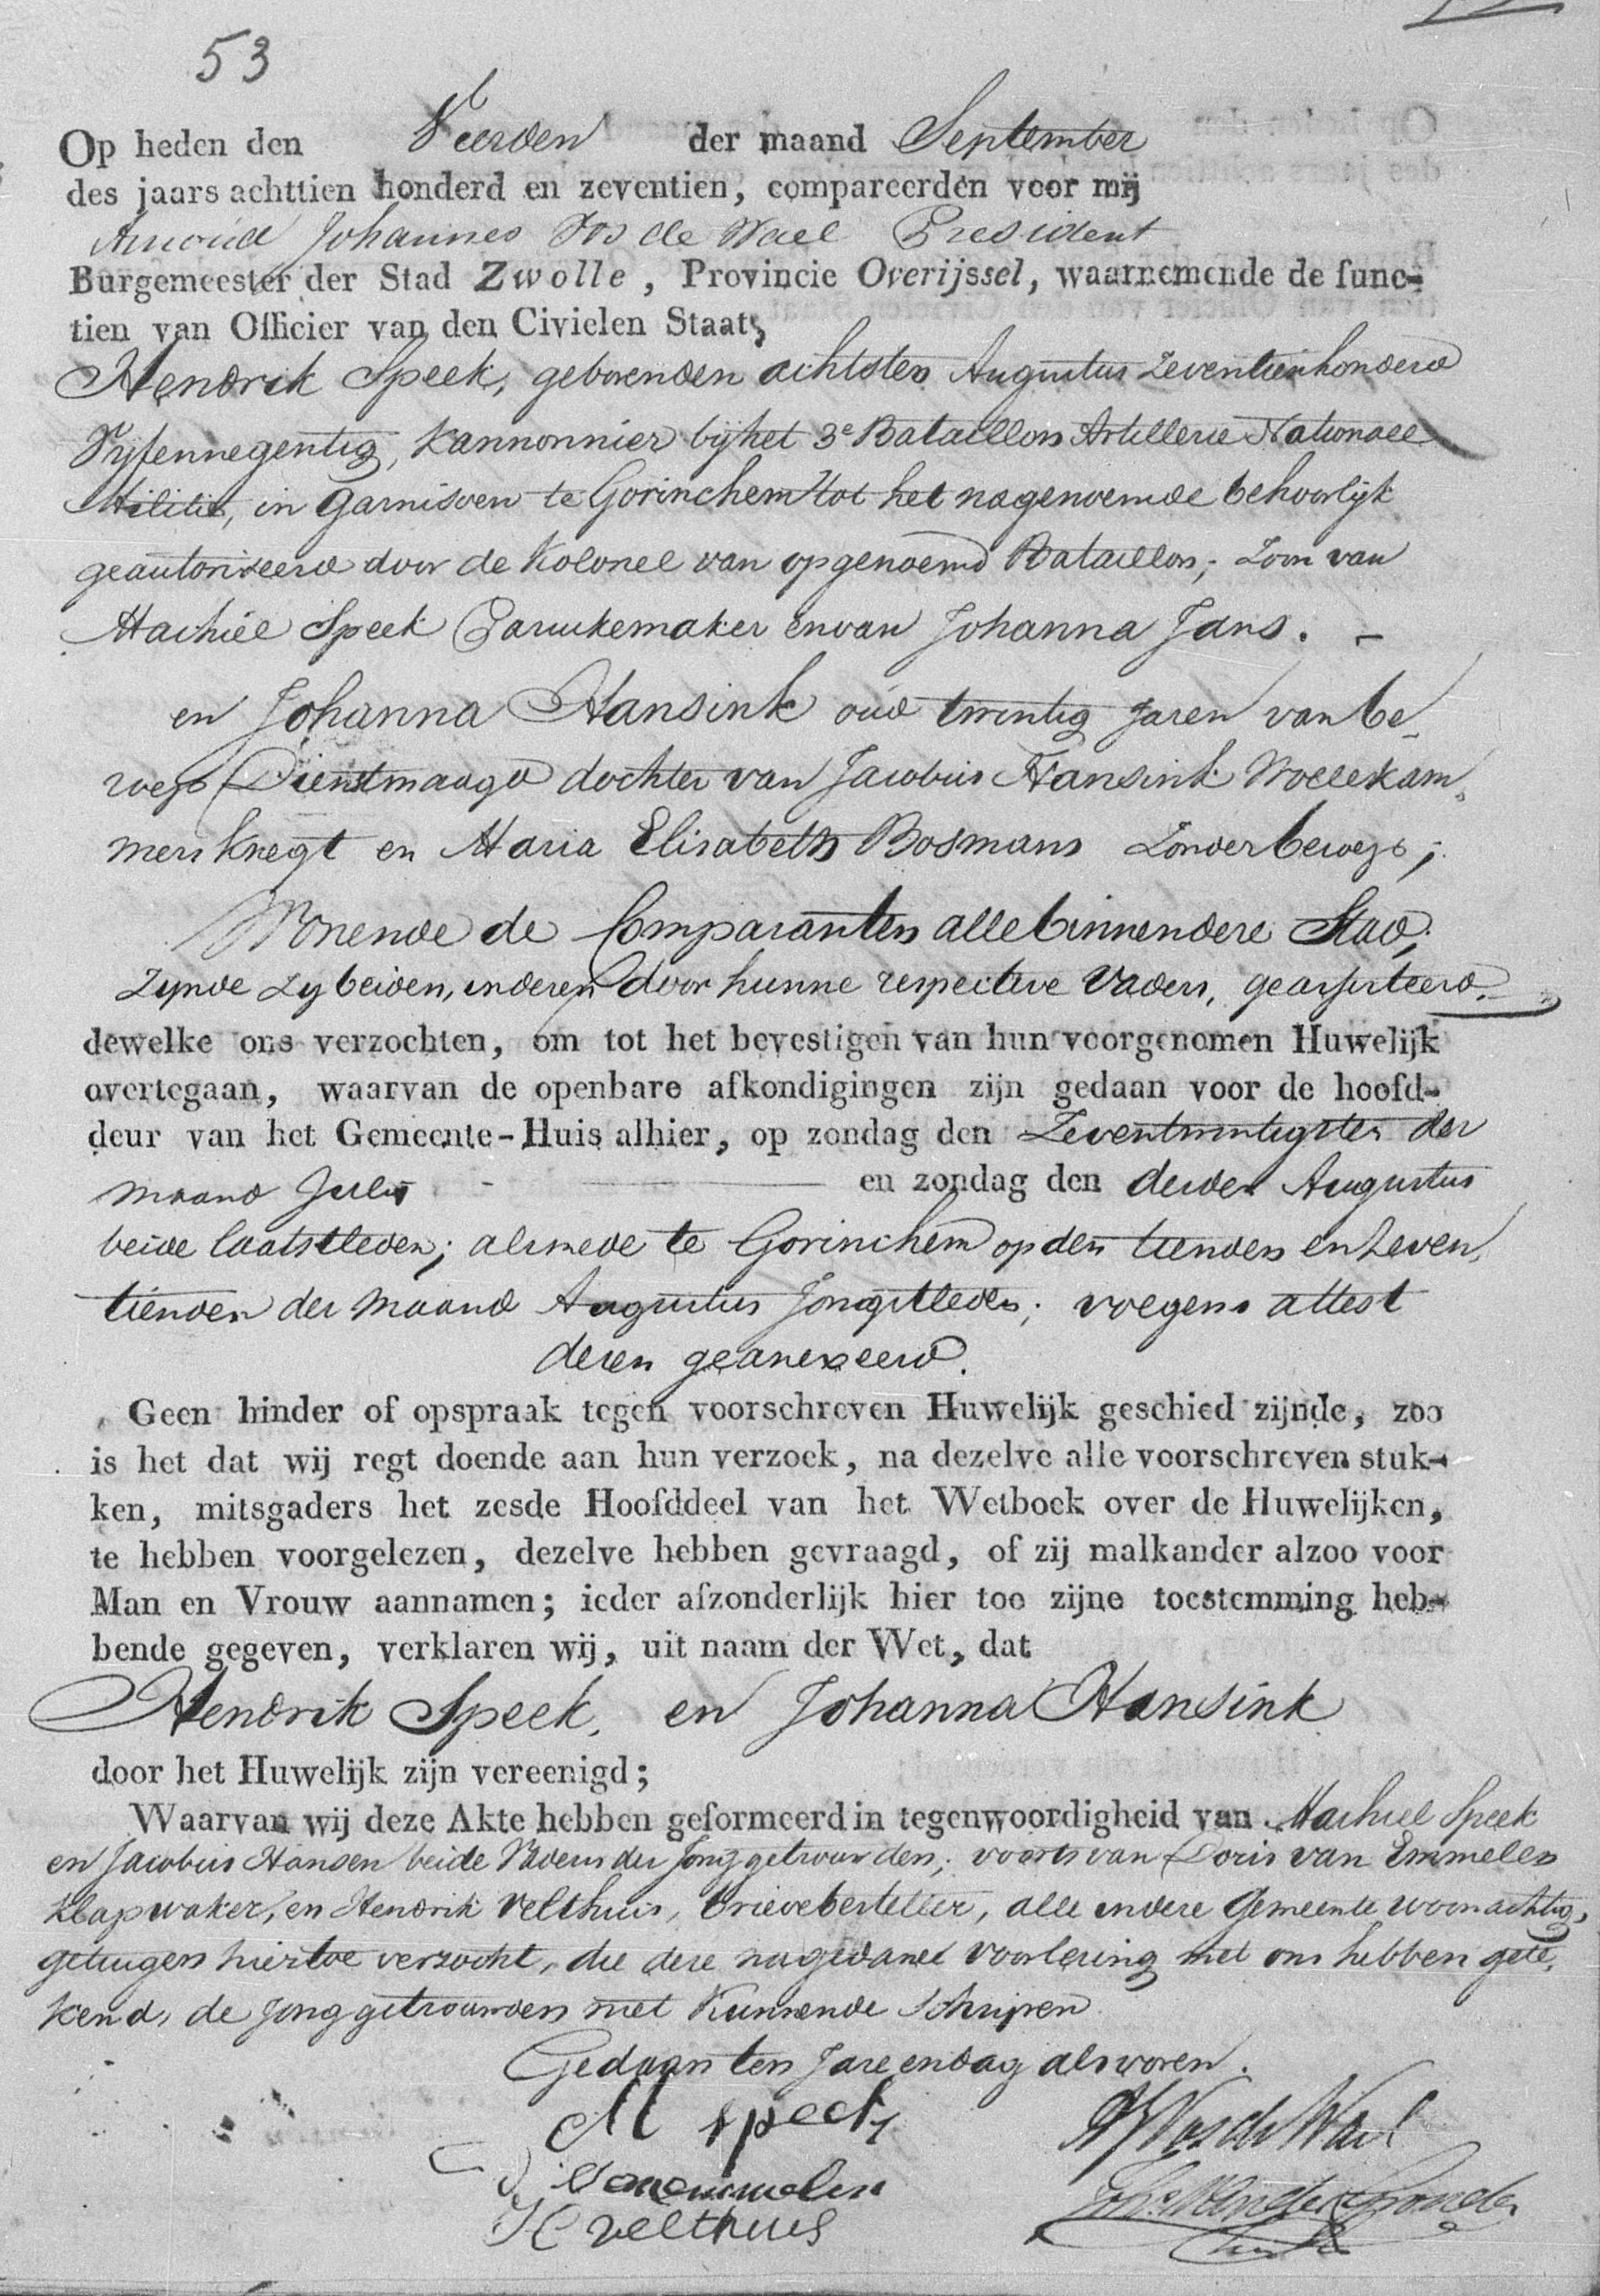 53
Op heden den Vierden der maand September
des jaars achttien honderd en zeventien, compareerden voor mij
Arnoud Johannes Vos de Wael President
Burgemeester der Stad Zwolle, Provincie Overijssel, waarnemende de func-
tien van Officier van den Civielen Staat,
Hendrik Speek, geboren den achtsten Augustus zeventienhonderd
Vyfennegentig, kannonnier by het 3e Bataillon Artillerie Nationale
Militie, in Garnisoen te Gorinchem tot het nagenoemde behoorlyk
geautoriseerd door de Kolonel van opgenoemd Bataillon; Zoon van
Machiel Speek Paruikemaker en van Johanna Jans. -
en Johanna Hansink oud twintig Jaren van be-
roep Dienstmaagd dochter van Jacobus Hansink Wollekam-
mersknegt en Maria Elisabeth Bosmans Zonder beroep;
Wonende de Comparanten alle binnen dese Stad;
zynde zy beiden, in desen door hunne respective Vaders, geassisteerd.
dewelke ons verzochten, om tot het bevestigen van hun voorgenomen Huwelijk
overtegaan, waarvan de openbare afkondigingen zijn gedaan voor de hoofd-
deur van het Gemeente-Huis alhier, op zondag den Zeventwintigsten der
maand July - en zondag den derden Augustus
beide laatstleden; alsmede te Gorinchem op den tienden en Zeven-
tienden der maand Augustus Jongstleden; volgens attest
desen geanexeerd.
Geen hinder of opspraak tegen voorschreven Huwelijk geschied zijnde, zoo
is het dat wij regt doende aan hun verzoek, na dezelve alle voorschreven stuk-
ken, mitsgaders het zesde Hoofddeel van het Wetboek over de Huwelijken,
te hebben voorgelezen, dezelve hebben gevraagd, of zij malkander alzoo voor
Man en Vrouw aannamen; ieder afzonderlijk hier toe zijne toestemming heb-
bende gegeven, verklaren wij, uit naam der Wet, dat
Hendrik Speek, en Johanna Hansink
door het Huwelijk zijn vereenigd;
Waarvan wij deze Akte hebben geformeerd in tegenwoordigheid van Machiel Speek
en Jacobus Hansen beide Vaders der Jonggetrouwden; voorts van Doris van Emmelen
klapwaker, en Hendrik Velthuis, brievebesteller, alle in dese Gemeente woonachtig,
getuigen hiertoe verzocht, die dese na gedane voorlezing met ons hebben gete-
kend, de Jonggetrouwden niet Kunnende Schrijven
Gedaan ten Jare en dag als voren.
M speek
AJ Vos de Wael
D van emmelen
H velthuis